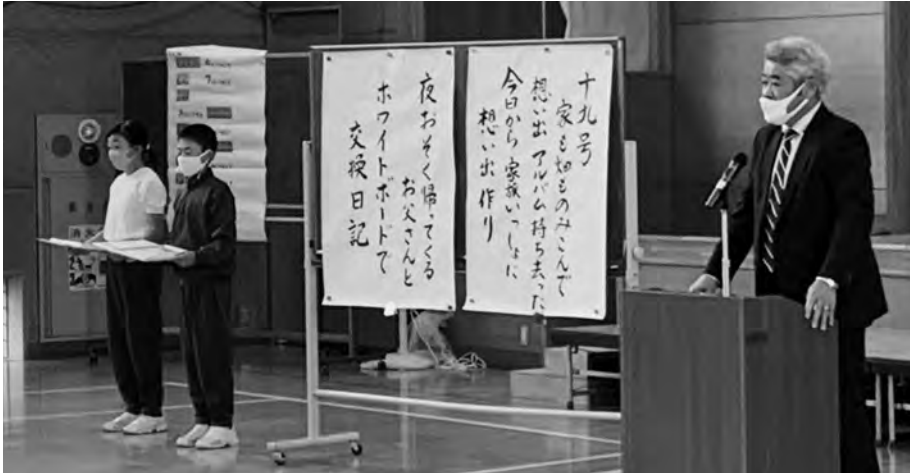 十九号
家も畑ものみこんで
想い出アルバム持ち去った
今日から家族いっしょに
想い出作り
夜おそく帰ってくる
お父さんと
ホワイトボードで
交換日記